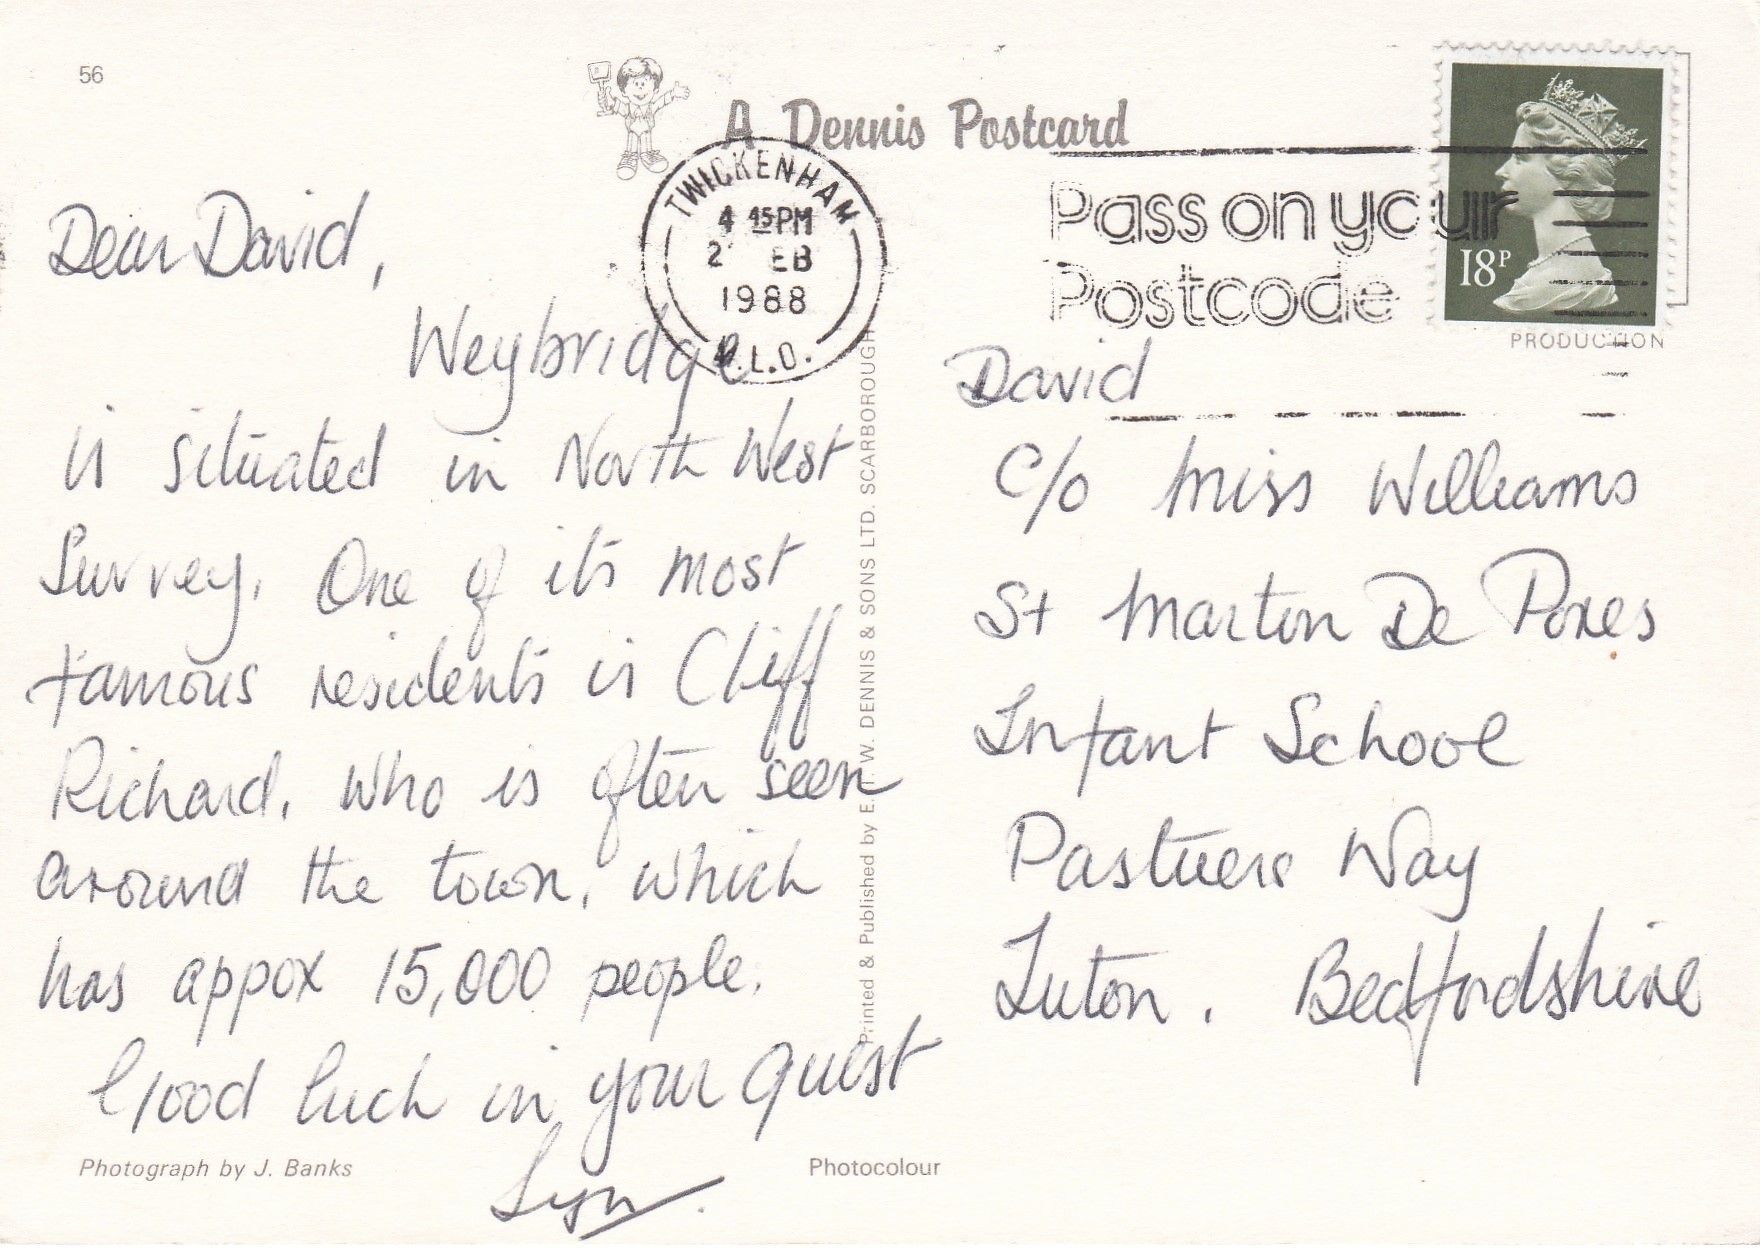 56
A Dennis Postcard
TWICKENHAM
4 45 PM
2 EB
1988
.L.O.
Pass on your
Postcode
18P
PRODUCTION
Dear David,
Weybridge
is situated in North West
Surrey. One of its most
famous residents is Cliff
Richard, who is often seen
around the town, which
has appox 15,000 people.
Good luck in your quest
Lyn.
Photograph by J. Banks
Photocolour
Printed & Published by E. T. W. DENNIS & SONS LTD. SCARBOROUGH
David
C/o Miss Williams
St Martin De Pores
Infant School
Pastures Way
Luton. Bedfordshire